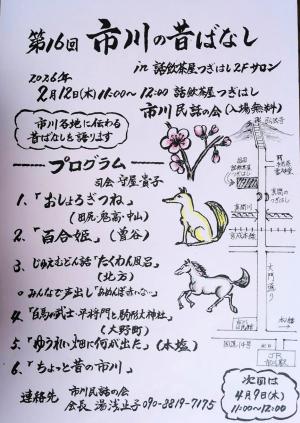 第16回 市川の昔ばなし
in 話飲茶屋つぎはし2Fサロン
2026年
2月12日(木)11:00〜12:00 話飲茶屋つぎはし
市川民話の会(入場無料)
市川各地に伝わる
昔ばなしを語ります
プログラム
司会 守屋貴子
1.「おしょろぎつね」
(田尻・鬼高・中山)
2.「百合姫」(曽谷)
3.じゅえむどん話「たくわん風呂」
(北方)
○みんなで声出し「あめんぼ赤いな…」
4.「白馬の武士・平将門と駒形大神社」
(大野町)
5.「ゆうれい畑に何が出た」(本塩)
6.「ちょっと昔の市川」
連絡先 市川民話の会
会長 湯浅止子 090-8819-7175
弘法寺
真間の
つぎはし
真間川
京成本線
大門通り
国道14号
JR
市川駅
次回は
4月9日(木)
11:00〜12:00